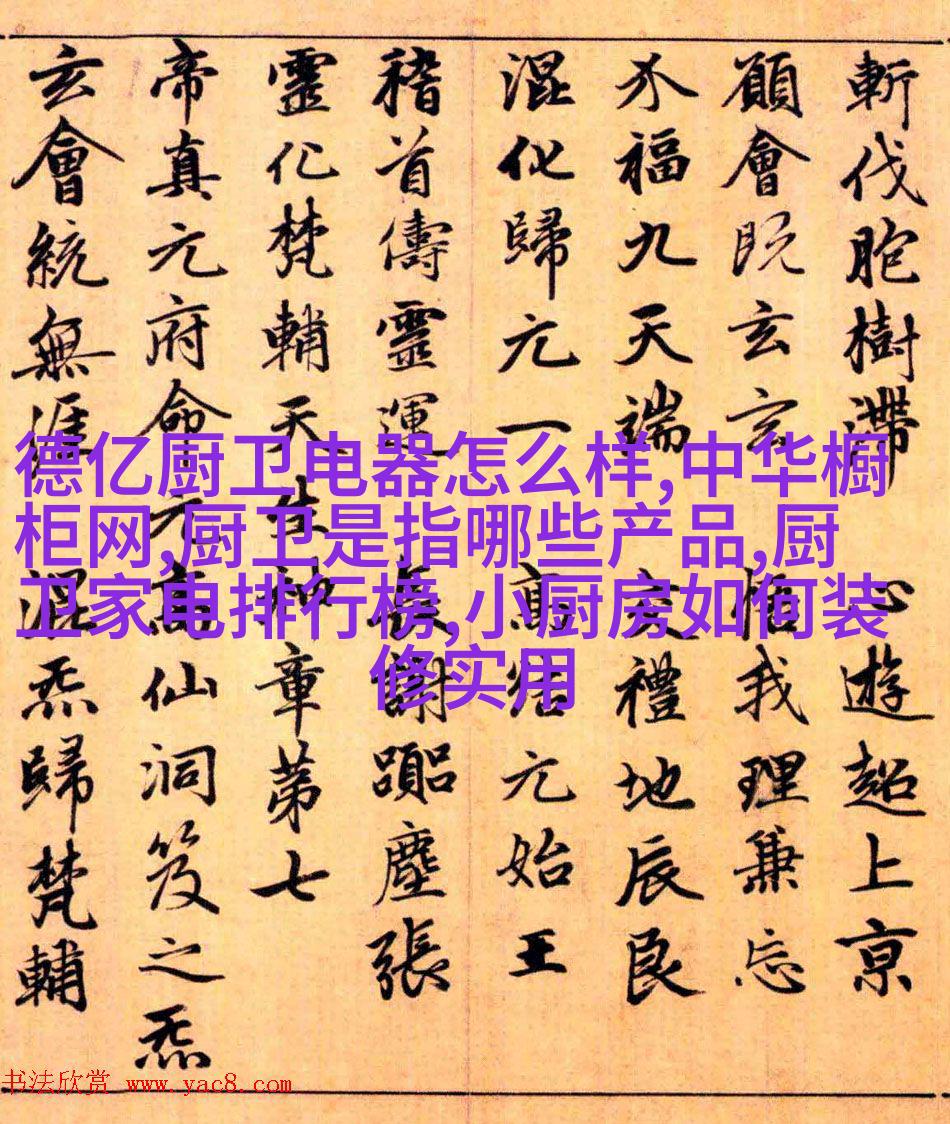 斬伐胞樹滯心遊超上京
願會既玄玄悟我理兼忘
福九天端交禮地辰良
混化歸元一高结元始王
稽首儔靈運長謝躡塵張
靈化梵輔天生神章第七
帝真元府命元高仙洞笈之炁
玄會統無涯混炁歸梵輔
德亿厨卫电器怎么样,中华橱
柜网,厨卫是指哪些产品,厨
卫家电排行榜,小厨房如何装
修实用
书法欣赏 www.yac8.com